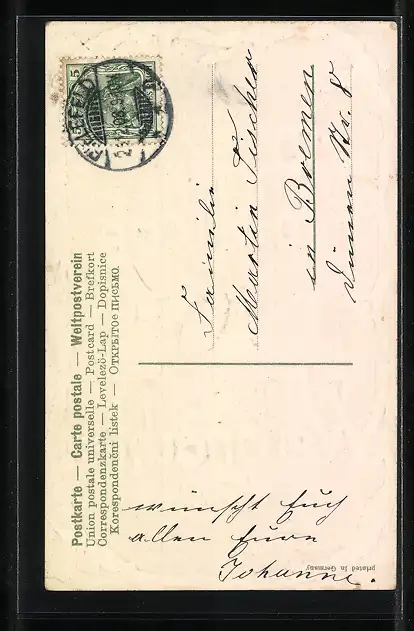 Postkarte — Carte postale — Weltpostverein
Union postale universelle — Postcard — Brefkort
Correspondenzkarte — Levelező-Lap — Dopisnice
Korespondenční listek — Открытое письмо.
5
BIELEFELD
Familie
Martin Fischer
in Bremen
Nr. 8
wünscht Euch
allen Eure
Johanne.
printed in Germany